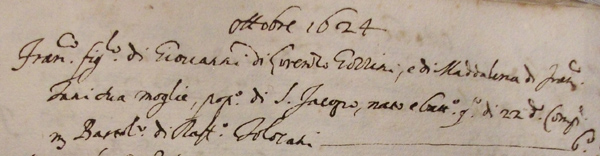 ottobre 1624
Fran.co fig.lo di Giovanni di Lorenzo Gollini, e di Maddalena di Fran.co
sua moglie, pop.o di S. Jacopo, nato e batt.o q.o di 22 d.o Comp.e
m Bartol.o di Raff.o 6.